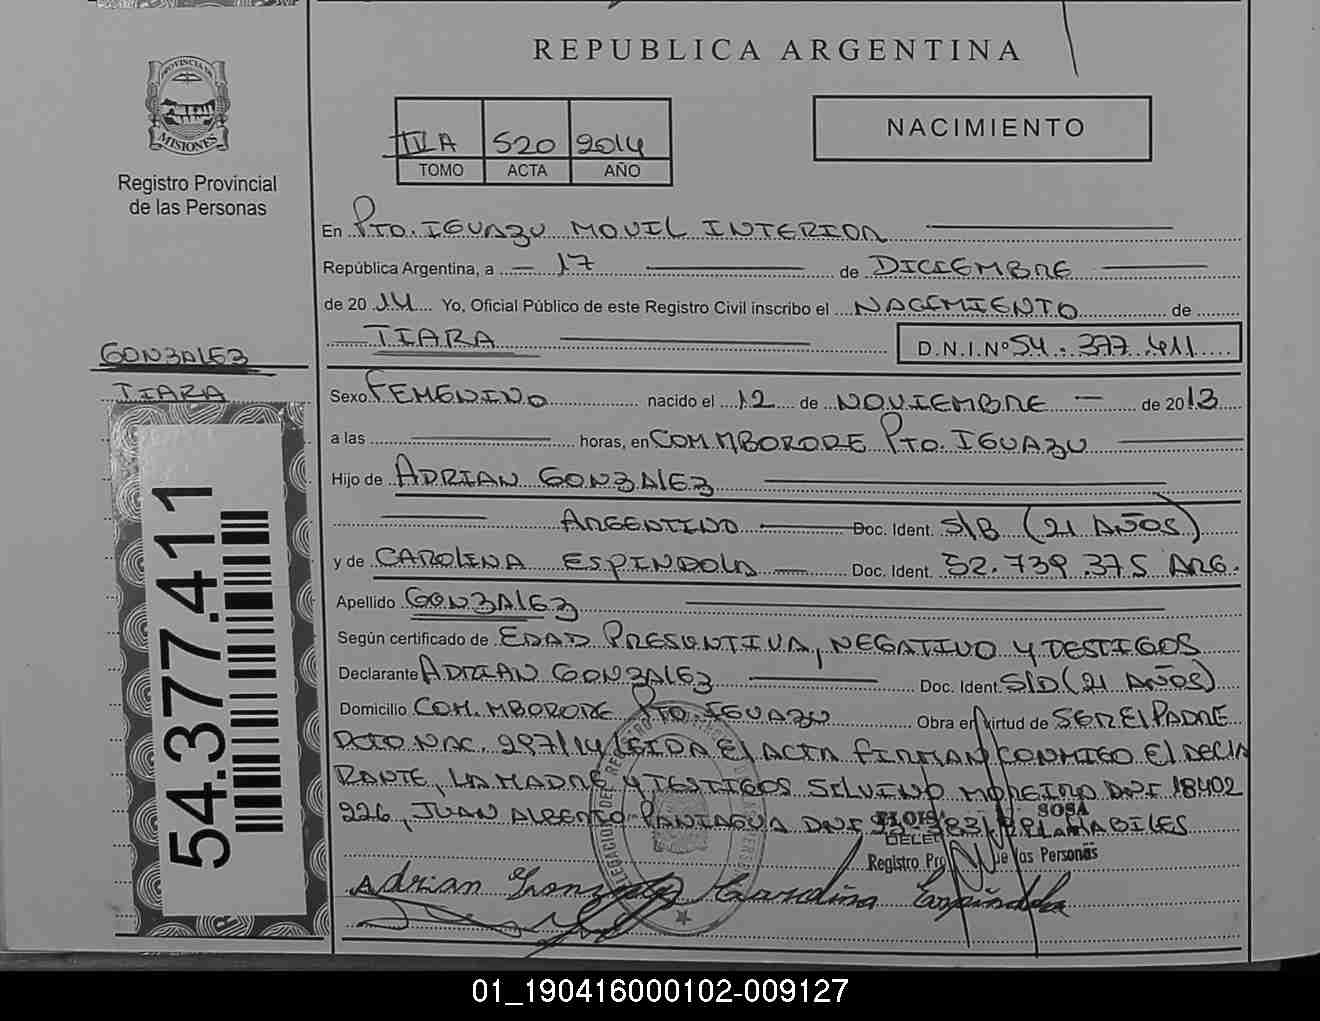 REPUBLICA ARGENTINA
PROVINCIA DE
MISIONES
Registro Provincial
de las Personas
IVA 520 2014
TOMO ACTA AÑO
NACIMIENTO
En PTO. IGUAZU MOVIL INTERIOR
República Argentina, a 17 de DICIEMBRE
de 2014 Yo, Oficial Público de este Registro Civil inscribo el NACIMIENTO de
TIARA D.N.I.Nº 54.377.411
GONZALEZ
TIARA
Sexo FEMENINO nacido el 12 de NOVIEMBRE de 2013
a las horas, en COM. MBORORE PTO. IGUAZU
Hijo de ADRIAN GONZALEZ
ARGENTINO Doc. Ident. S/D (21 AÑOS)
y de CAROLINA ESPINDOLA Doc. Ident. 52.739.375 ARG.
Apellido GONZALEZ
Según certificado de EDAD PRESUNTIVA, NEGATIVO Y TESTIGOS
Declarante ADRIAN GONZALEZ Doc. Ident. S/D (21 AÑOS)
Domicilio COM. MBORORE PTO. IGUAZU Obra en virtud de SER EL PADRE
DCTO NAC. 297/14 LEIDA EL ACTA FIRMAN CONMIGO EL DECLA
RANTE, LA MADRE Y TESTIGOS SILVINO MOREIRA DNI 18402
226, JUAN ALBERTO PANIAGUA DNI HABILES
SOSA
Registro de las Personas
Adrian Gonzalez Carolina Espindola
54.377.411
01_190416000102-009127